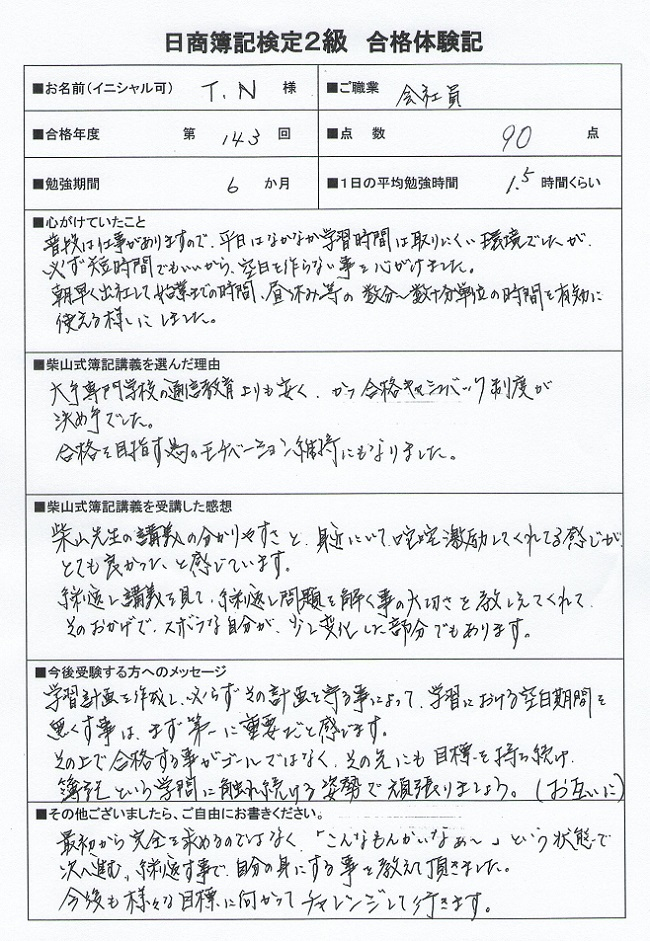 日商簿記検定2級 合格体験記
■お名前(イニシャル可) T.N 様 ■ご職業 会社員
■合格年度 第 143 回 ■点 数 90 点
■勉強期間 6 か月 ■1日の平均勉強時間 1.5 時間くらい
■心がけていたこと
普段は仕事がありますので、平日はなかなか学習時間は取りにくい環境でしたが、
必ず短時間でもいいから、空日を作らない事を心がけました。
朝早く出社して始業までの時間、昼休み等の数分〜数十分単位の時間を有効に
使える様にしました。
■柴山式簿記講義を選んだ理由
大手専門学校の通信教育よりも安く、かつ合格キャッシュバック制度が
決め手でした。
合格を目指す為のモチベーション維持にもなりました。
■柴山式簿記講義を受講した感想
柴山先生の講義の分かりやすさと、身近にいて叱咤激励してくれてる感じが、
とても良かった、と感じています。
繰返し講義を見て、繰返し問題を解く事の大切さを教えてくれて、
そのおかげで、ズボラな自分が、少し変化した部分でもあります。
■今後受験する方へのメッセージ
学習計画を作成し、必らずその計画を守る事によって、学習における空白期間を
無くす事は、まず第一に重要だと感じます。
その上で合格する事がゴールではなく、その先にも目標を持ち続け、
簿記という学問に触れ続ける姿勢で頑張りましょう。(お互いに)
■その他ございましたら、ご自由にお書きください。
最初から完全を求めるのではなく、「こんなもんかいなぁ〜」という状態で
次へ進む、繰返す事で、自分の身にする事を教えて頂きました。
今後も様々な目標に向かってチャレンジして行きます。